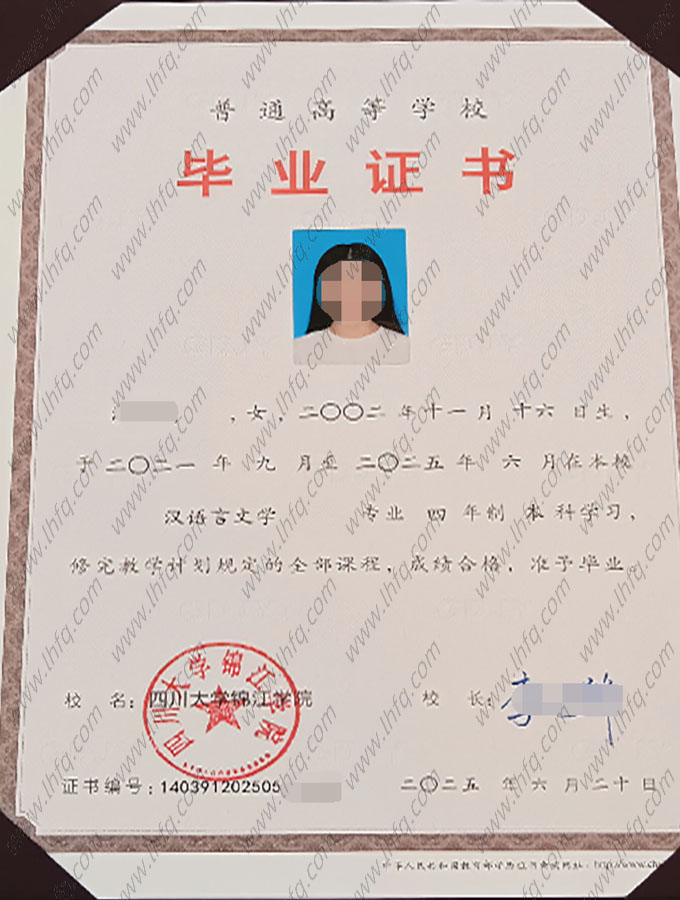 普通高等学校
毕业证书
,女,二〇〇二年十一月十六日生,
于二〇二一年九月至二〇二五年六月在本校
汉语言文学 专业 四年制 本科学习,
修完教学计划规定的全部课程,成绩合格,准予毕业。
校 名:四川大学锦江学院
校 长:李
四川大学锦江学院
证书编号:140391202505
二〇二五年六月二十日
中华人民共和国教育部学历证书查询网址:http://www.ch
www.lhfq.com